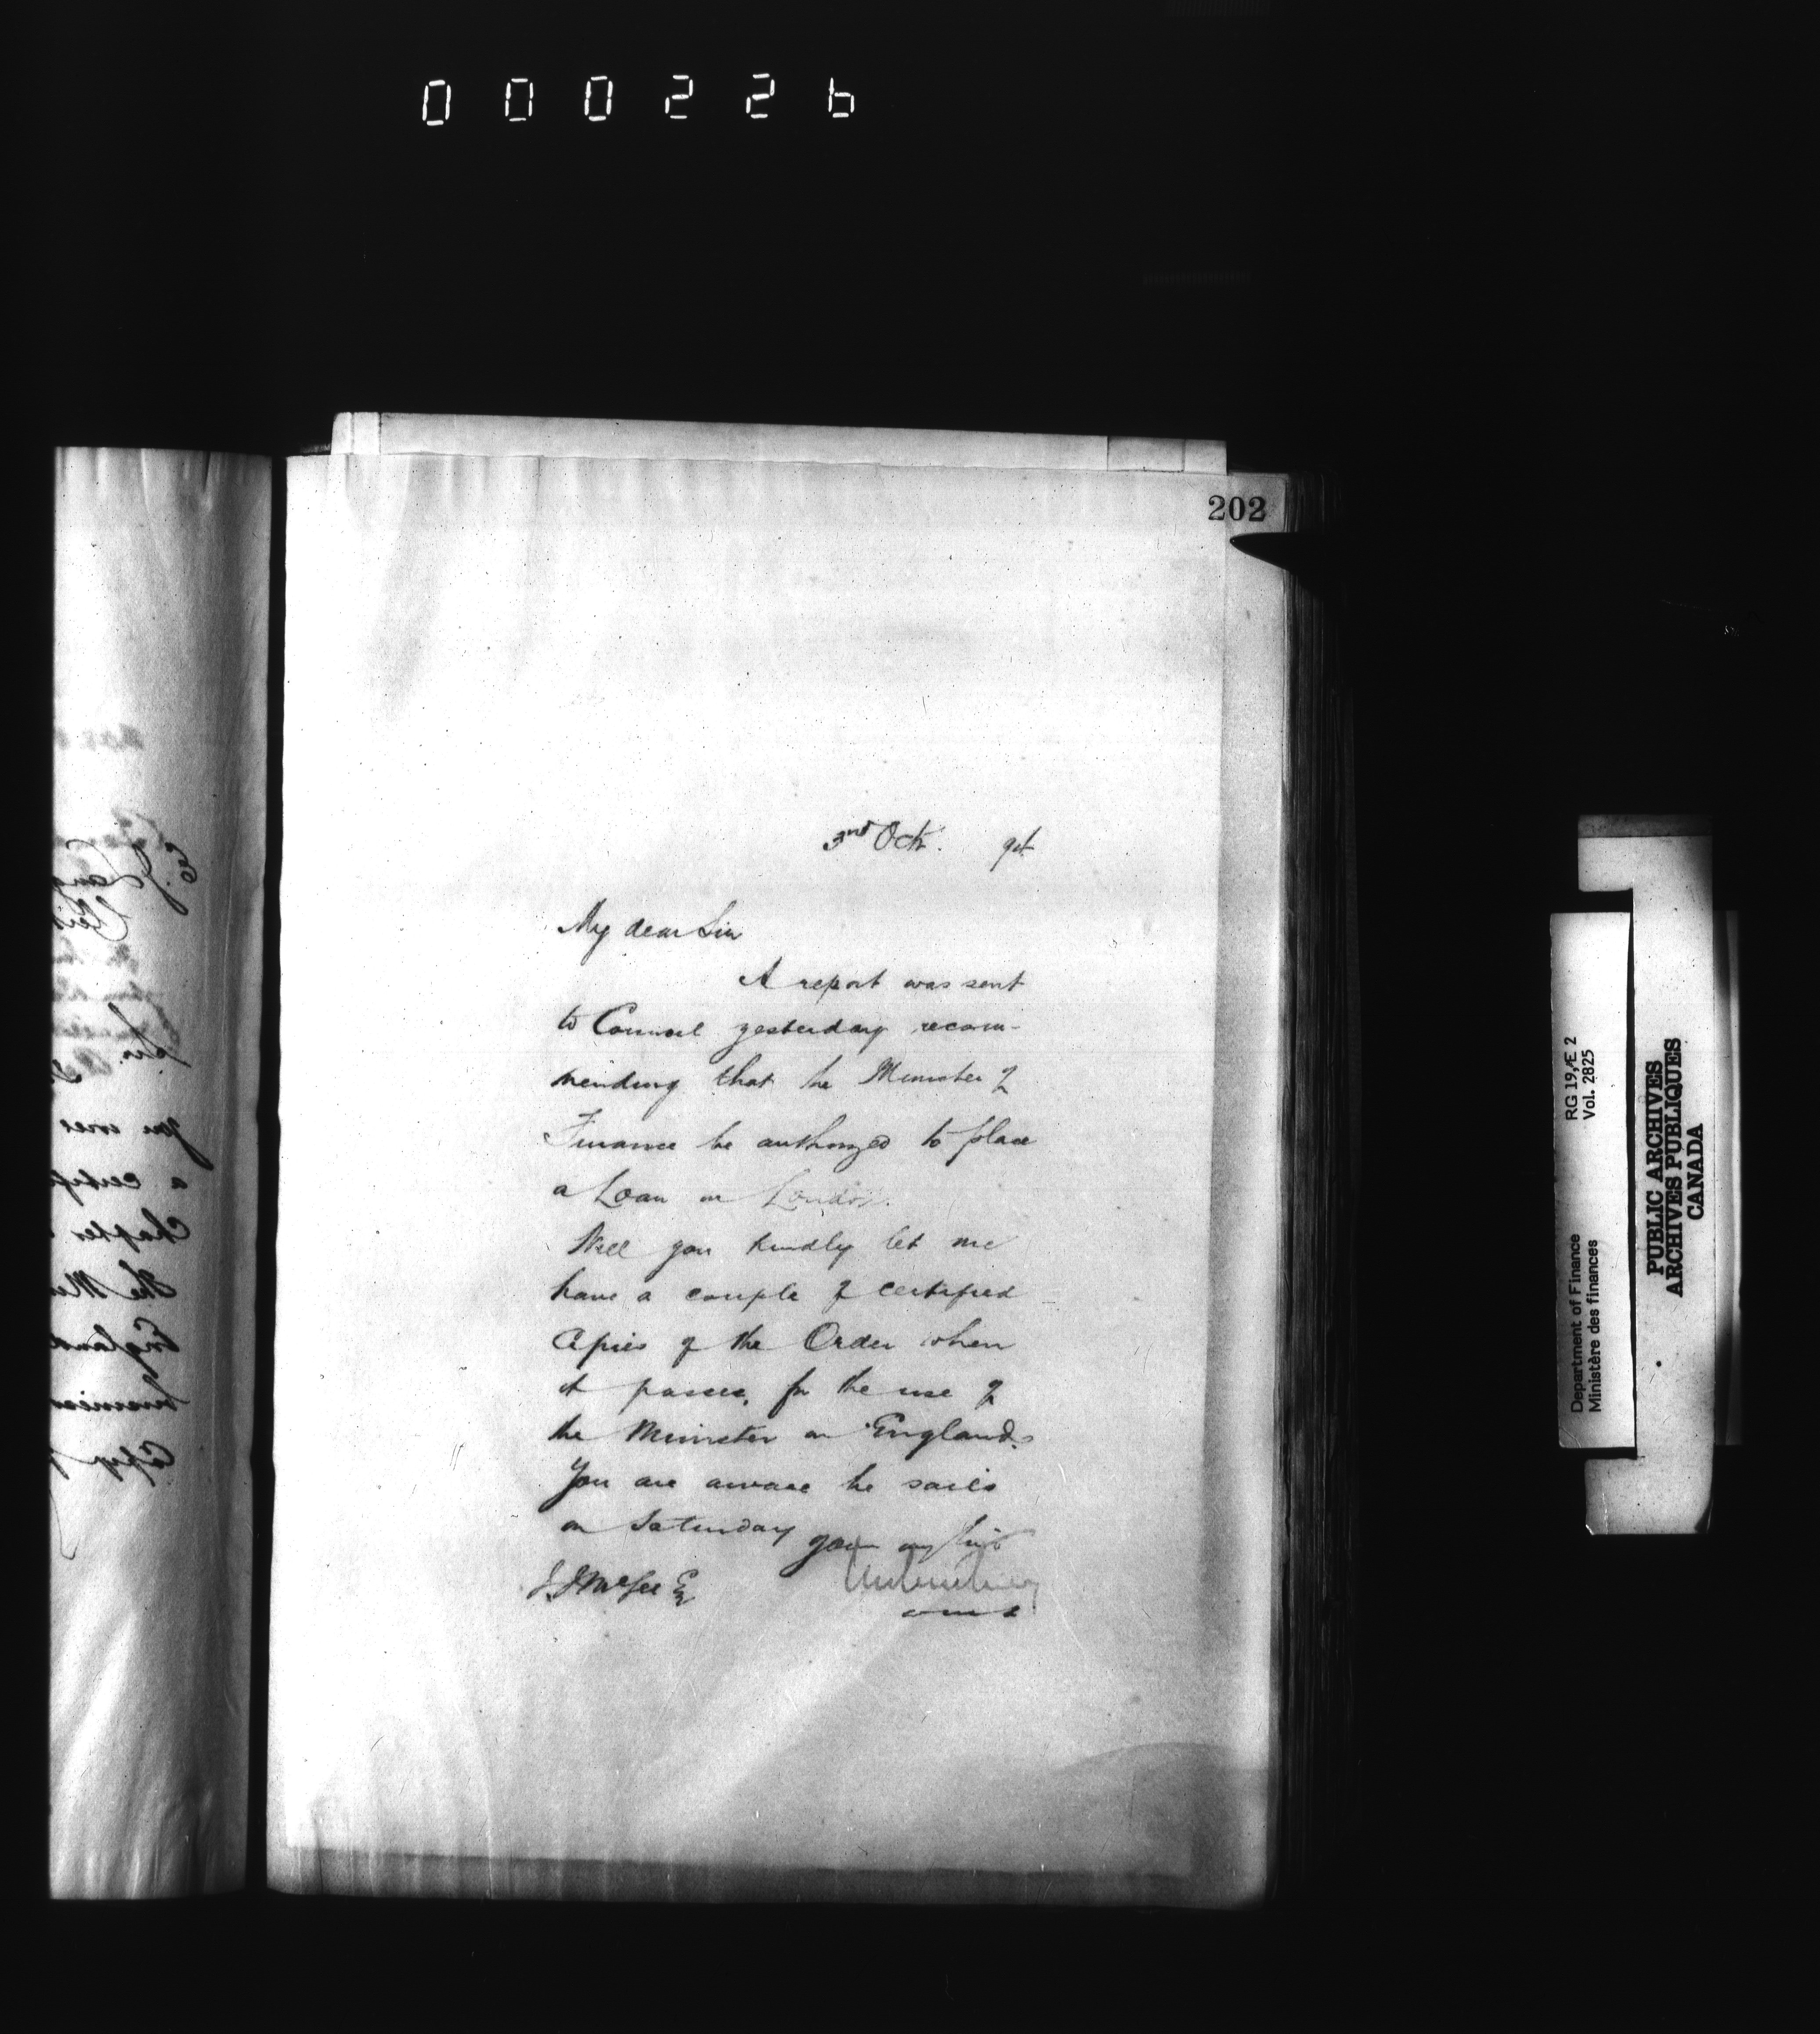 000226
202
3rd Oct. 94
My dear Sir
A report was sent
to Council yesterday recom-
mending that the Minister of
Finance be authorized to place
a Loan in London.
Will you kindly let me
have a couple of certified
Copies of the Order when
it passes, for the use of
the Minister in England.
You are aware he sails
on Saturday
J.J. McGee Esq
RG 19, E 2
Vol. 2825
Department of Finance
Ministère des finances
PUBLIC ARCHIVES
ARCHIVES PUBLIQUES
CANADA